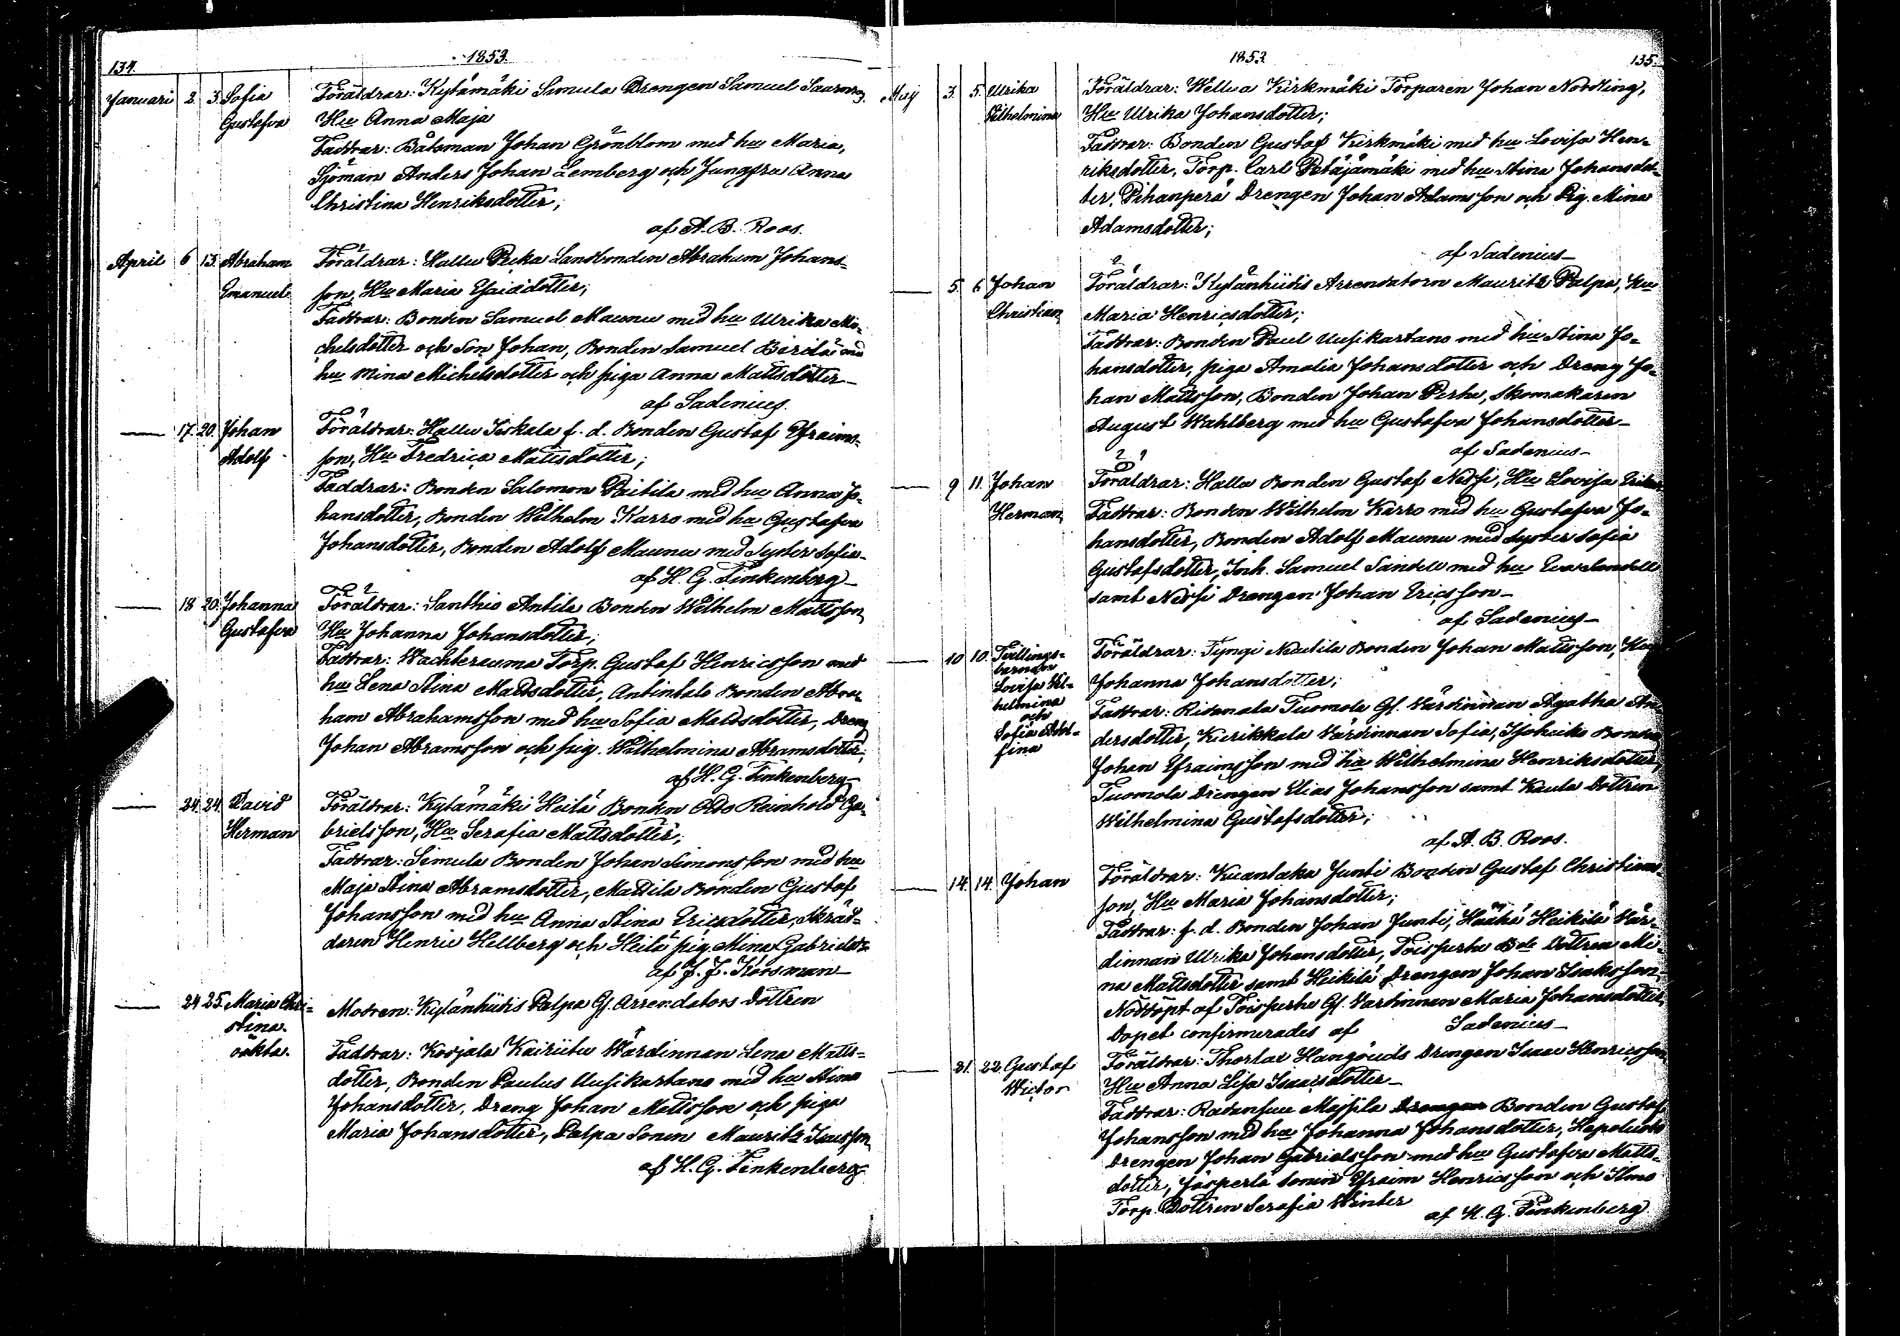 134.
1853.
Januari 2. 3. Sofia Gustafva
Föräldrar: Kylämäki Simula Drengen Samuel Saarnros,
Hu Anna Maja
Faddrar: Båtsman Johan Grönblom med hu Maria,
Sjöman Anders Johan Lemberg och Jungfru Anna
Christina Henriksdotter;
af A. B. Roos.
April 6 13. Abraham Emanuel
Föräldrar: Hallu Peka Landbonden Abraham Johans-
son, Hu Maria Esaiædotter;
Faddrar: Bonden Samuel Maunu med hu Ulrika Mi-
chelsdotter och Son Johan, Bonden Samuel med
hu Mina Michelsdotter och piga Anna Mattsdotter
af Sadenius.
17. 20. Johan Adolf
Föräldrar: Hallu Seskala f. d. Bonden Gustaf Efraims-
son, Hu Fredrica Mattsdotter;
Faddrar: Bonden Salomon Paitila med hu Anna Jo-
hansdotter, Bonden Wilhelm Karro med hu Gustafva
Johansdotter, Bonden Adolf Maunu med Syster Sofia
af H. G. Finkenberg
18 20. Johanna Gustafva
Föräldrar: Santhio Antila Bonden Wilhelm Mattsson,
Hu Johanna Johansdotter;
Faddrar: Wachterauma Torp. Gustaf Henricsson med
hu Lena Stina Mattsdotter, Antintalo Bonden Abra-
ham Abrahamsson med hu Sofia Mattsdotter, Dreng
Johan Abramsson och pig. Wilhelmina Abramsdotter,
af H. G. Finkenberg
24. 24. David Herman
Föräldrar: Kylämäki Heilä Bonden Ado Reinhold Ga-
brielsson, Hu Serafia Mattsdotter;
Faddrar: Simula Bonden Johan Simonsson med hu
Maja Stina Abramsdotter, Mattila Bonden Gustaf
Johansson med hu Anna Stina Ericsdotter, Skräd-
daren Henric Hellberg och Heilä pig. Mina Gabrielsdr
af J. J. Korsman
24 25. Maria Chri-
stina.
oäkta.
Modren: Kylänhiidis Palpa Gl. Arrendators dottren
Faddrar: Korjala Kairiitu Wärdinnan Lena Matts-
dotter, Bonden Paulus Uusikartano med hu Stina
Johansdotter, Dreng Johan Mattsson och piga
Maria Johansdotter, Palpa Sonen Mauritz Isacsson,
af H. G. Finkenberg
1853
135.
Maij 3. 5. Ulrika Vilhelmina
Föräldrar: Wellua Kirkmäki Torparen Johan Nordling,
Hu Ulrika Johansdotter;
Faddrar: Bonden Gustaf Kirkmäki med hu Lovisa Hen-
riksdotter, Torp. Carl Petäjämäki med hu Stina Johansdot-
ter, Pihanperä Drengen Johan Adamsson och Pig. Mina
Adamsdotter;
af Sadenius
5. 6 Johan Christian
Föräldrar: Kylänhiidis Arrendatorn Mauritz Palpa, Hu
Maria Henricsdotter;
Faddrar: Bonden Paul Uusikartano med hu Stina Jo-
hansdotter, piga Amalia Johansdotter och Dreng Jo-
han Mattsson, Bonden Johan Perhe, Skomakaren
August Wahlberg med hu Gustafva Johansdotter
af Sadenius
9 11. Johan Herman
Föräldrar: Hallu Bonden Gustaf Nessi, Hu Lovisa
Faddrar: Bonden Wilhelm Karro med hu Gustafva Jo-
hansdotter, Bonden Adolf Maunu med Syster Sofia
Gustafsdotter, Inh. Samuel Sandell med hu Eva Sandell
samt Nessi Drengen Johan Ericsson
af Sadenius
10 10. Tvillings-
barnen
Lovisa Wil-
helmina
och
Sofia Adol-
fina
Föräldrar: Tyngi Nautila Bonden Johan Mattsson, Hu
Johanna Johansdotter;
Faddrar: Ritamala Tuomola Gl. Wärdinnan Agatha An-
dersdotter, Kierikkala Wärdinnan Sofia, Isokuiko Bonden
Johan Efraimsson med hu Wilhelmina Henriksdotter,
Tuomola Drengen Elias Johansson samt Kaula Dottren
Wilhelmina Gustafsdotter;
af A. B. Roos.
14. 14. Johan
Föräldrar: Kuanlaka Junti Bonden Gustaf Christians-
son, Hu Maria Johansdotter;
Faddrar: f. d. Bonden Johan Junti, Heikilä Wär-
dinnan Ulrika Johansdotter, Toisperhe Bde Dottren Mi-
na Mattsdotter samt Heikilä Drengen Johan Isaksson,
Nöddöpt af Toisperhe Gl. Wärdinnan Maria Johansdotter,
Dopet confirmerades af Sadenius
21. 22. Gustaf Wictor
Föräldrar: Thorlax Hangöuds Drengen Isaac Henricsson,
Hu Anna Lisa Isaacsdotter
Faddrar: Radansuu Majsila Drengen Bonden Gustaf
Johansson med hu Johanna Johansdotter,
Drengen Johan Gabrielsson med hu Gustafva Matts-
dotter, Jásperlä Sonen Efraim Henricsson och Ilmo
Torp. Dottren Serafia Winter
af H. G. Finkenberg